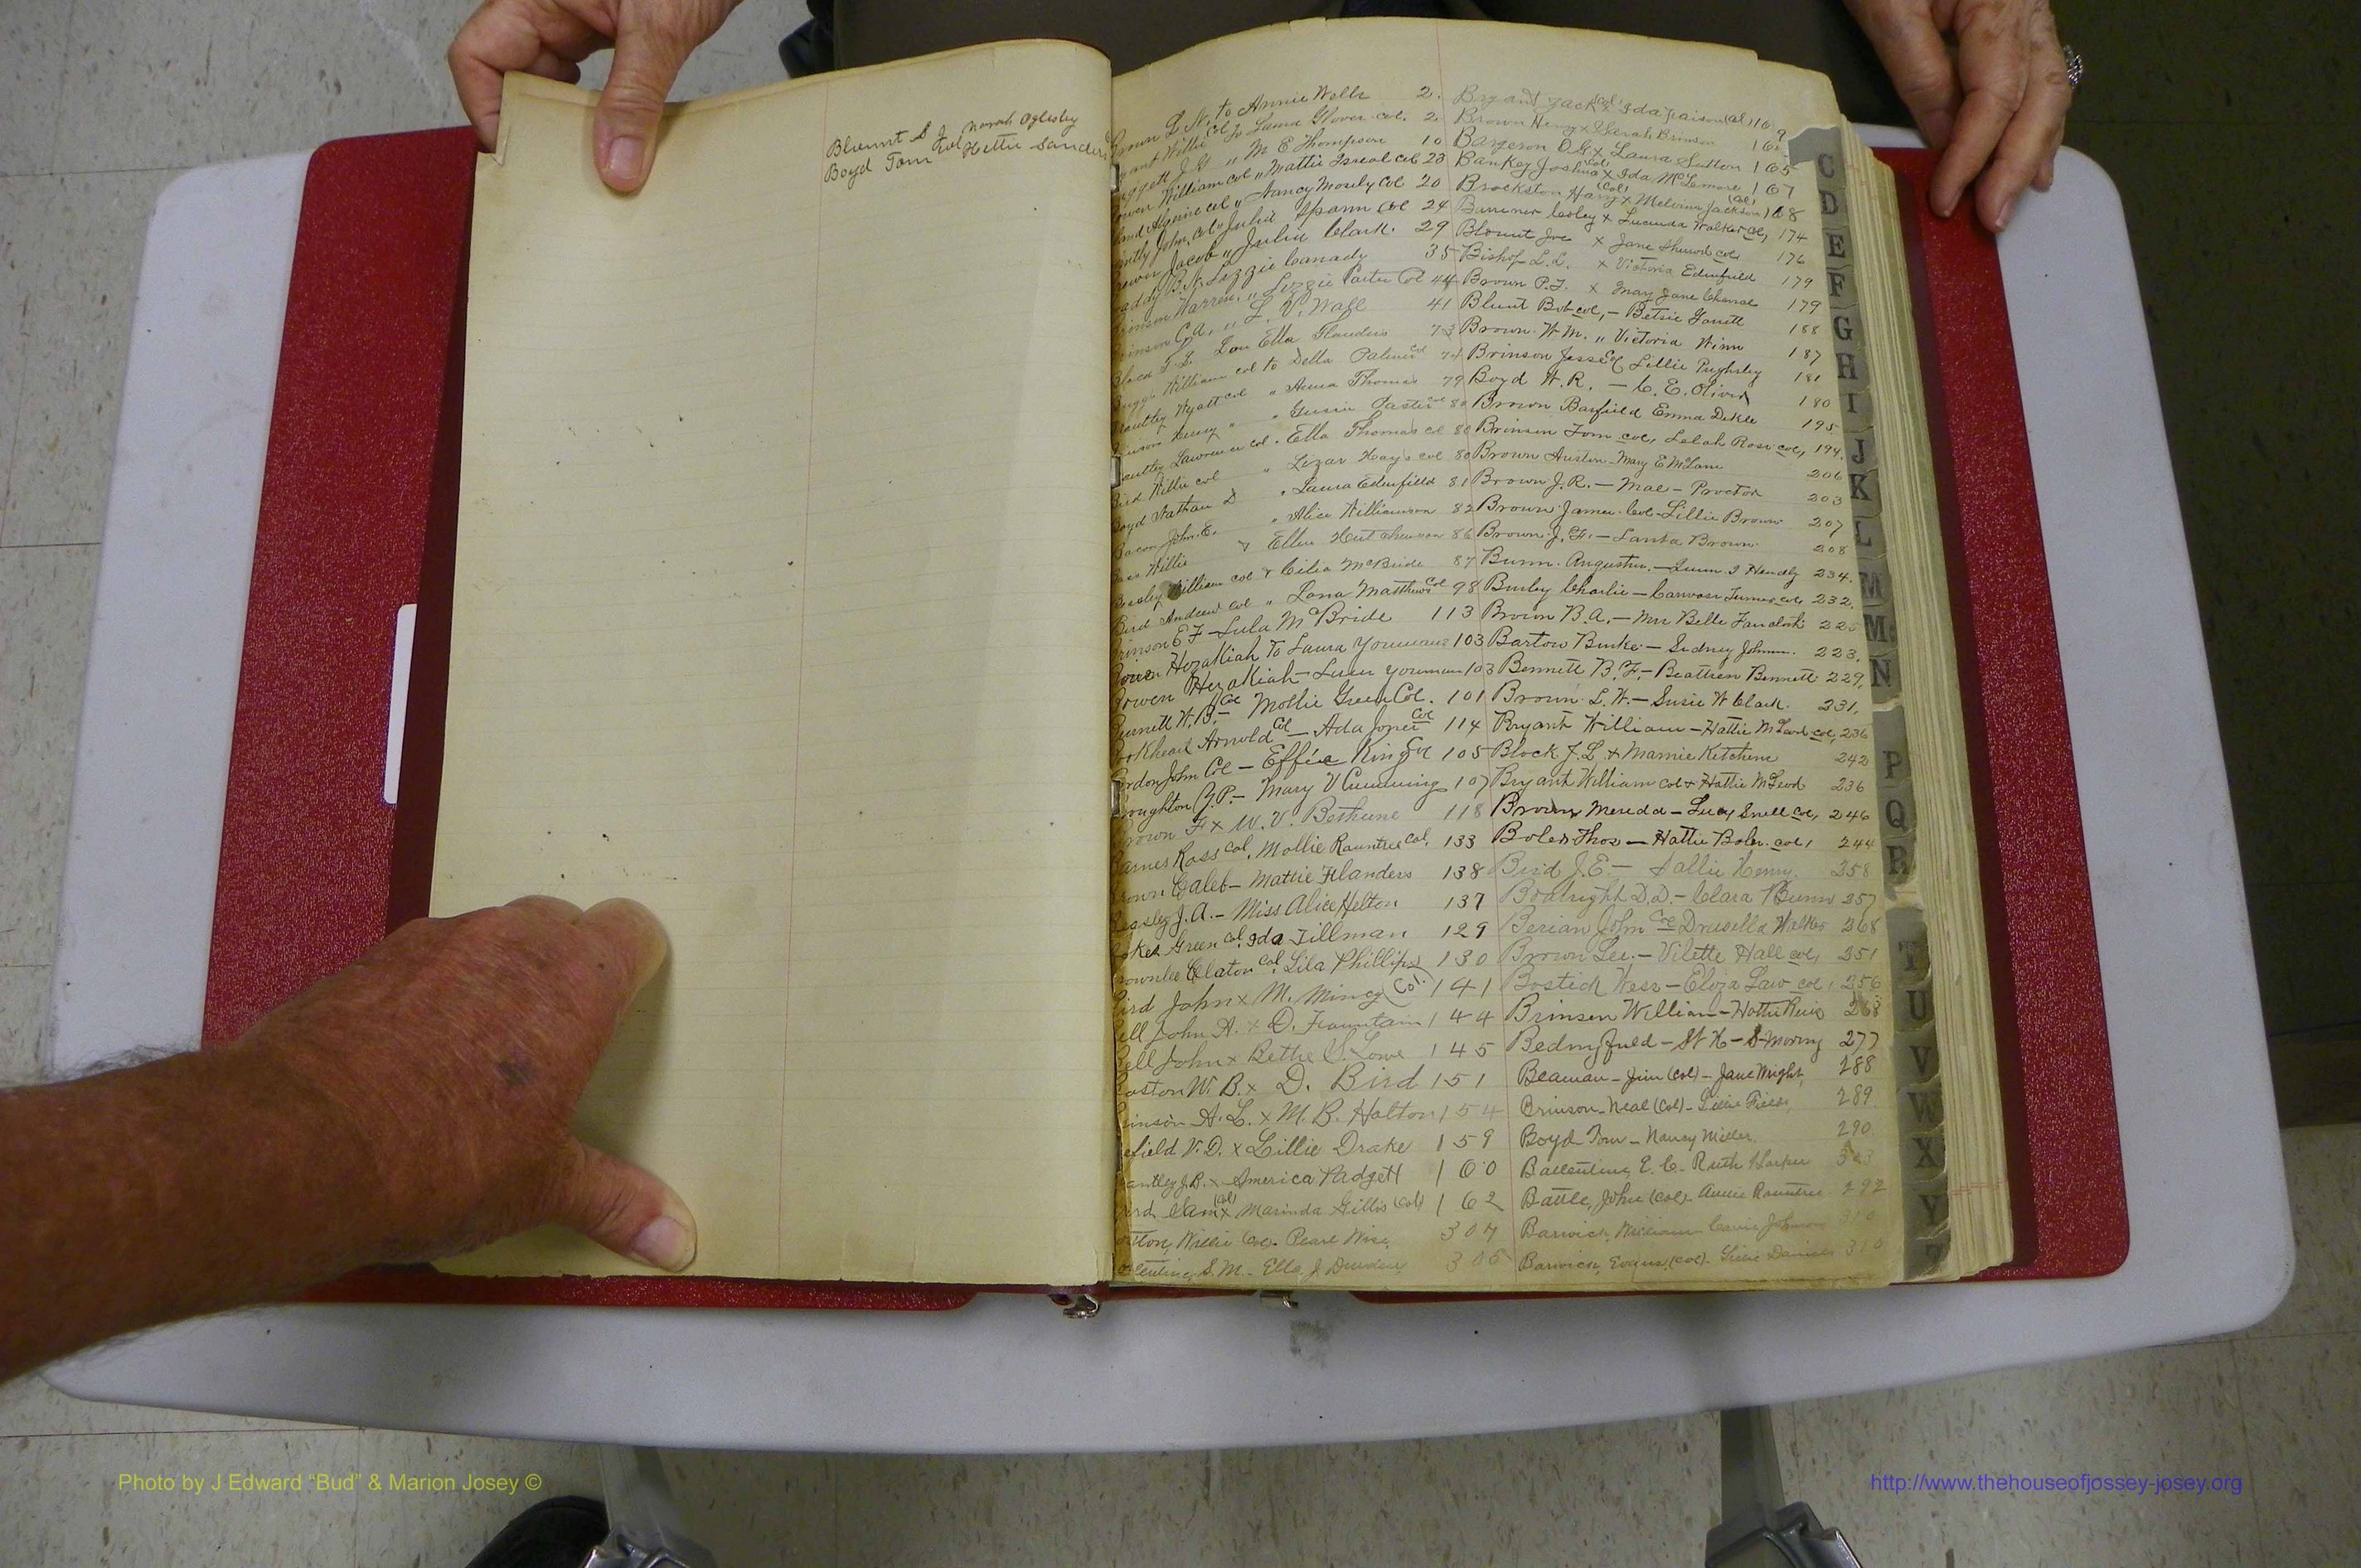 Blount S J Norah Oglesby
Boyd Tom Col Hettie Sanders
Brown L. N. to Annie Wells 2.
Willie Col to Laura Glover col. 2
J. H. " M E Thompson 10
William col " Mattie Isreal col 23
col " Nancy Mosely Col 20
John, Col " Julia Spann Col 24
Jacob " Julia Clark. 29
B. J. Lizzie Canady 35
Warren " Lizzie Carter Col 44
" L. V. Wall 41
Lou Ella Flanders 73
William col to Della Palmer col 74
Wyatt col " Anna Thomas 79
Henry " " Gussie col 80
Lawrence col. Ella Thomas col 80
Bird Willie col " Lizar Hays col 80
Boyd Nathan D " Laura Edenfield 81
Bacon John E. " Alice Williamson 82
Willie & Ellen 86
Beasley William col & Cilia McBride 87
Bird Andrew col " Lona Matthews Col 98
Brinson E F - Lula McBride 113
Hezakiah To Laura Youmans 103
Bowen Hezakiah - Laura Youmans 103
Burnett W. B. Col Mollie Green Col. 101
Arnold Col - Ada Jones Col 114
John Col - Effie King Col 105
Broughton G. P. - Mary V Cumming 107
Brown F x W. V. Bethune 118
Barnes Ross Col, Mollie Rountree Col. 133
Brown Caleb - Mattie Flanders 138
Beasley J. A. - Miss Alice Helton 137
Green Col. Ida Tillman 129
Brownlee Claton Col. Lila Phillips 130
Bird John x M. Mincy (Col.) 141
Bell John A. x D. Fountain 144
Bell John x Bethe S. Lowe 145
W. B. x D. Bird 151
Brinson A. L. x M. B. Holton 154
V. D. x Lillie Drake 159
J. R. x America Padgett 160
Bird Sam (Col) x Marinda Gillis (Col) 162
Willie Col. Pearl Wise 304
S. M. Ella J. Durden 305
Bryant Jack Col x Ida (Col) 16
Brown Henry x Sarah Brinson 16
Bargeron D. G. x Laura Sutton 165
Bankey Joshua Col x Ida McLemore 167
Brockston Harry (Col) x Melvina Jackson (Col) 168
Cooley x Lucinda Walker Col, 174
Blount Joe x Jane col 176
Bishop L. L. x Victoria Edenfield 179
Brown P. J. x Mary Jane 179
Blunt Bob col, - Betsie 188
Brown W. M. " Victoria Winn 187
Brinson Jesse Col Lillie Pughsley 181
Boyd W. R. - C. E. Oliver 180
Brown Barfield Emma Dekle 195
Brinson Tom col, Lelah Rose col, 194
Brown Austin - Mary E McLane 206
Brown J. R. - Mae - Proctor 203
Brown James Col - Lillie Brown 207
Brown J. F. - Santa Brown 208
Bunn Augustus - 234.
Burley Charlie - Turner col, 232.
Brown B. A. - Mrs Belle 225
Bartow Burke - Sidney Johnson. 223.
Bennett B. F. - Beatrice Bennett 229.
Brown L. W. - Susie W Clark. 231.
Bryant William - Hattie McLeod col, 236
Block J. L. & Mamie Kitchens 242
Bryant William col & Hattie McLeod 236
Brown Merida - Lucy Snell col, 246
Boler Thos - Hattie Boler col, 244
Bird J. E. - Sallie Henry. 258
Boatright D. D. - Clara Bunn 257
Berian John Col Drusella Walker 268
Brown Lee - Vilette Hall col, 251
Bostick Wess - Eliza Law col, 256
Brinson William - Hattie 263
277
Beaman - Jim (Col) - Jane Wright, 288
Brinson - Neal (Col) - Lillie Fields, 289
Boyd Tom - Nancy Miller. 290
Ballentine, E. C. Ruth Harper
Battle, John (Col) - Annie Rountree 292
Barwick, William Carrie Johnson 310
Barwick, Evans, (Col). Lillie Daniels 310
C
D
E
F
G
H
I
J
K
L
M
Mc
N
P
Q
R
T
U
V
W
X
Y
Z
Photo by J Edward “Bud” & Marion Josey ©
http://www.thehouseofjossey-josey.org